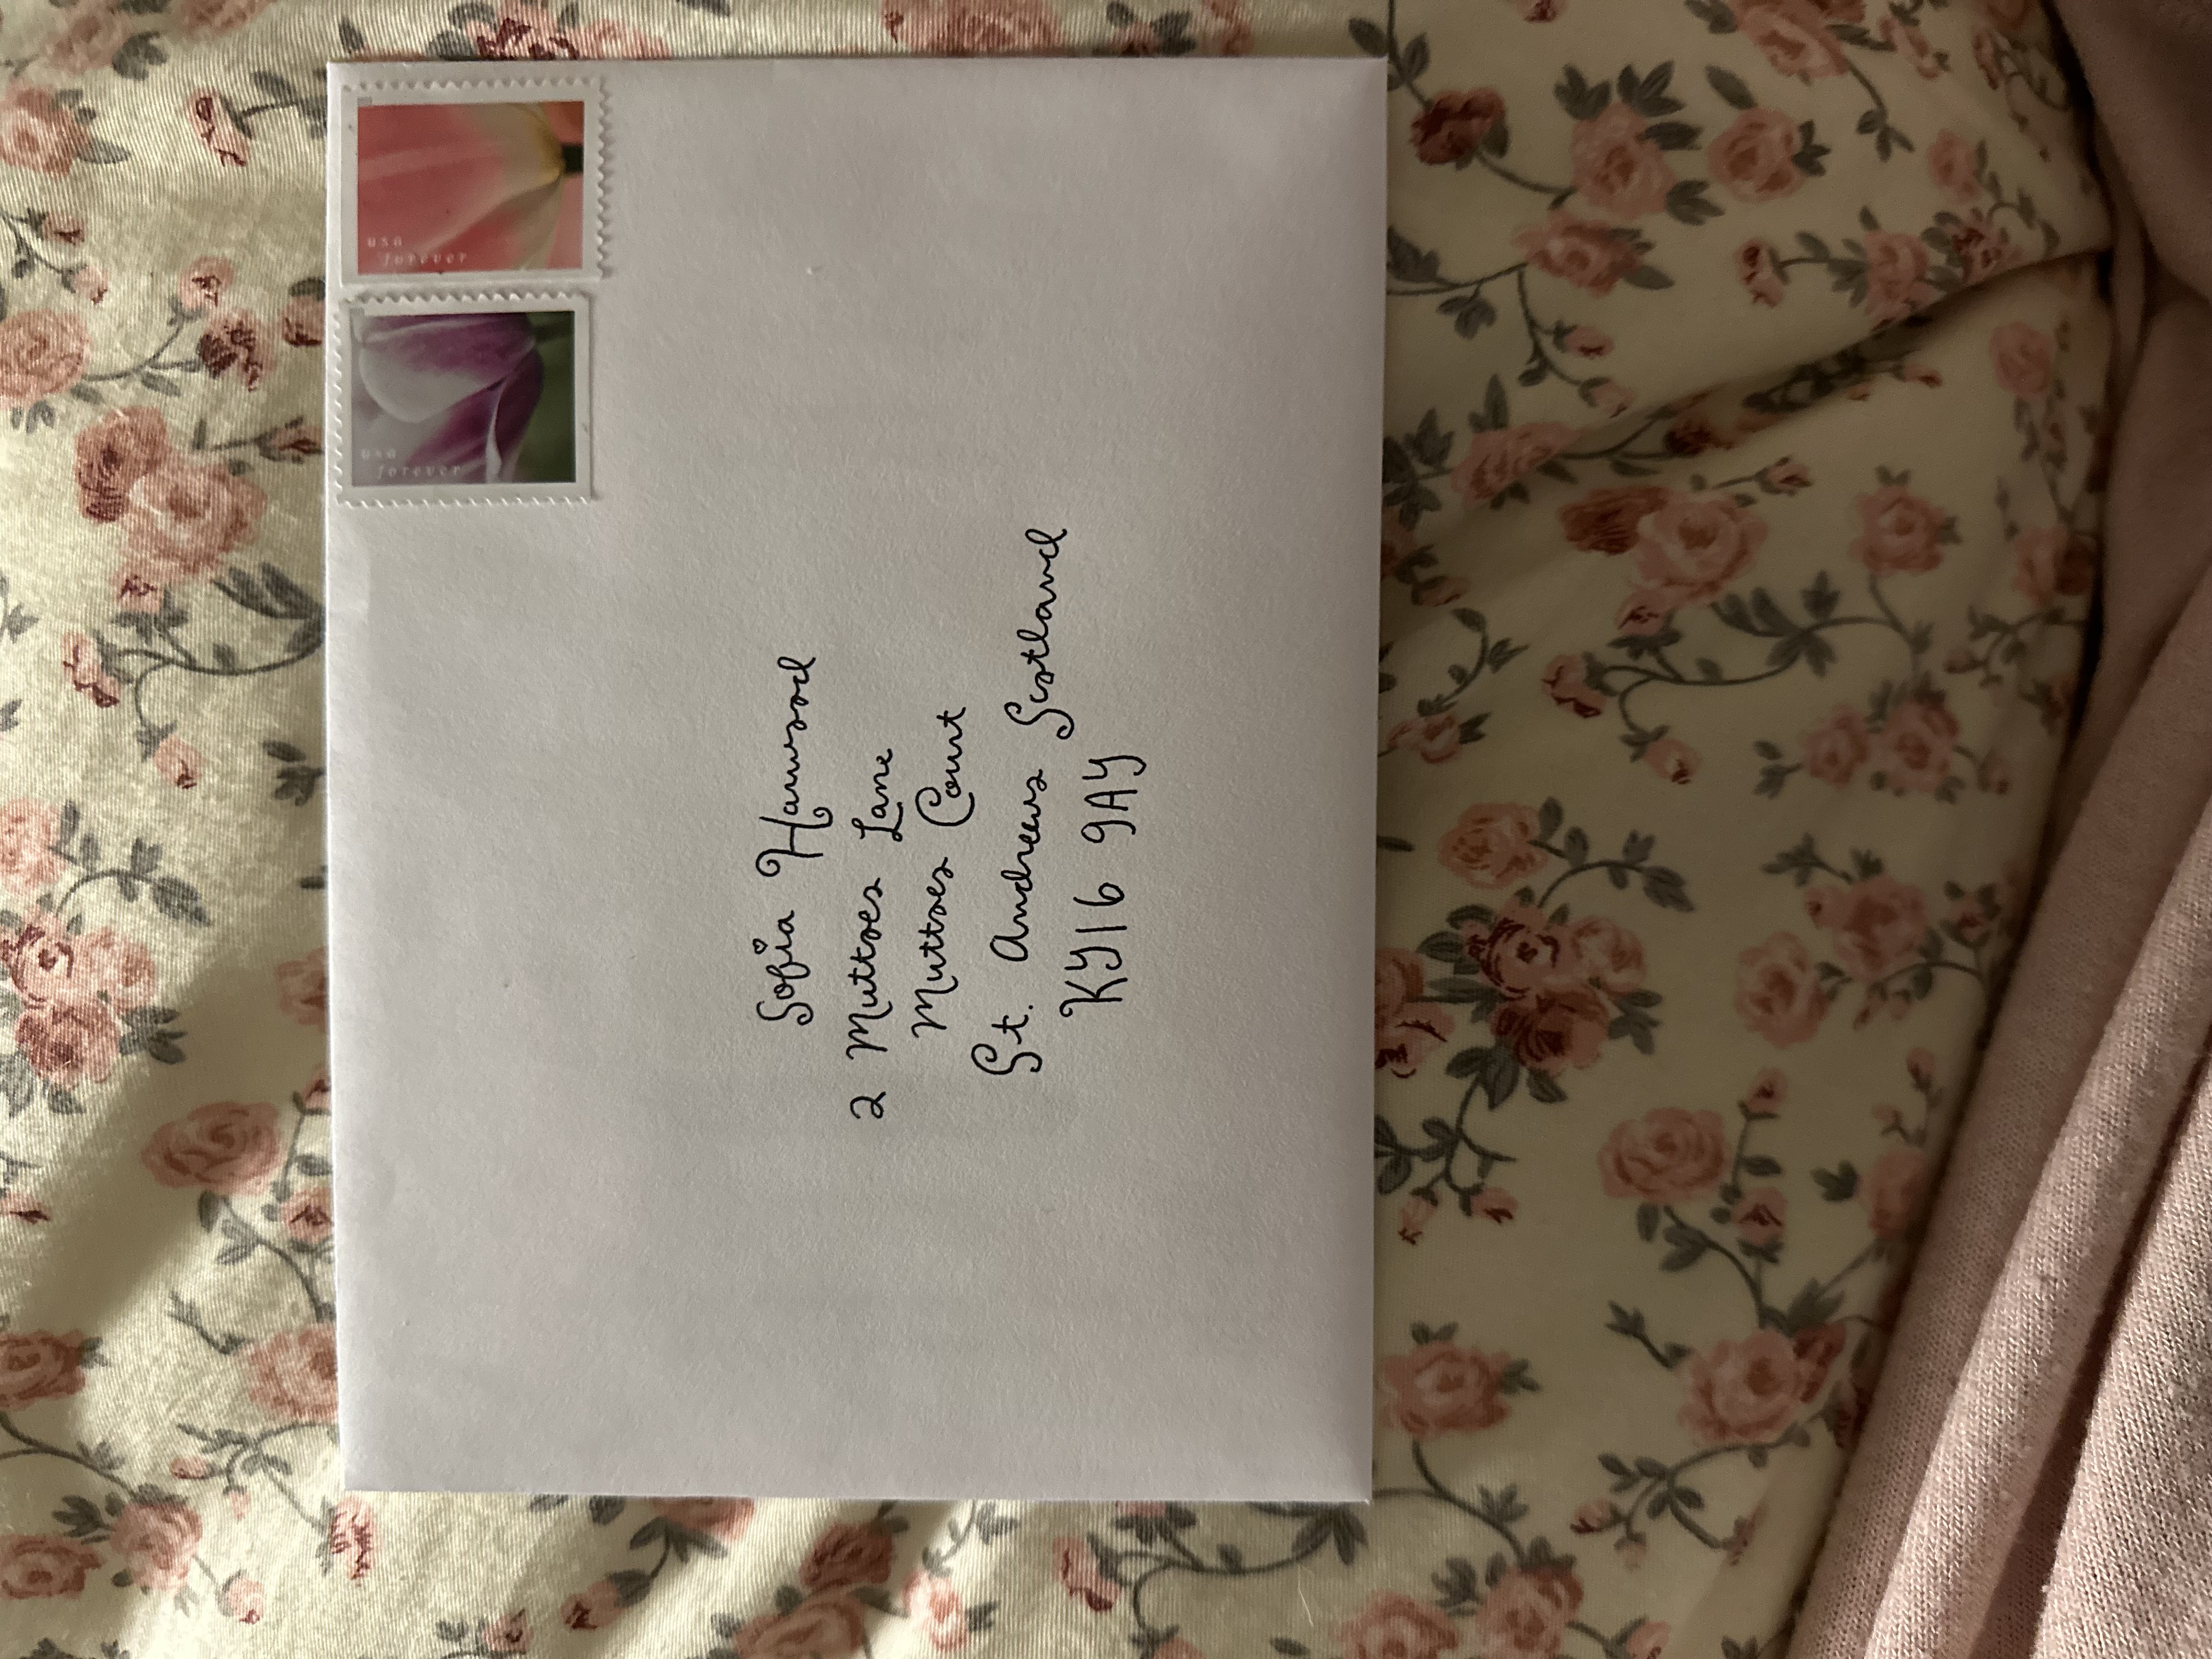 usa
forever
usa
forever
Sofia Harwood
2 Muttoes Lane
Muttoes Court
St. Andrews Scotland
KY16 9AY